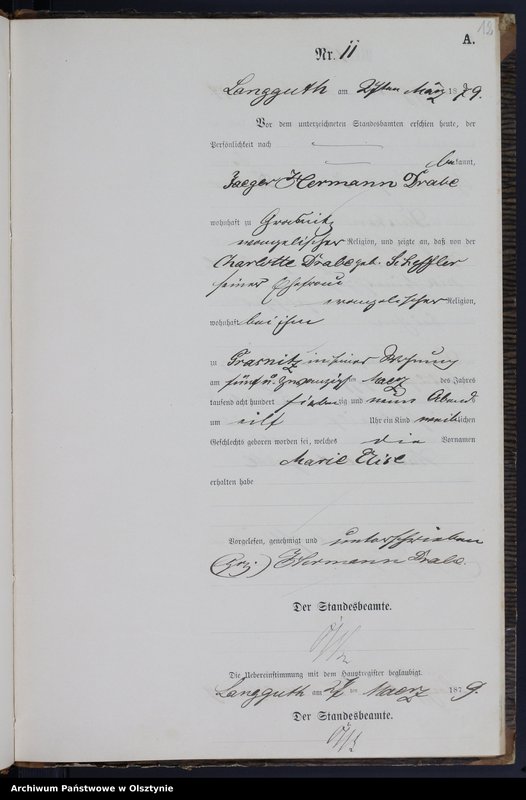 12
A.
Nr. 11
Langguth am 27ten März 1879.
Vor dem unterzeichneten Standesbeamten erschien heute, der
Persönlichkeit nach
bekannt,
Jaeger Hermann Drabe
wohnhaft zu Grabnitz
evangelischer Religion, und zeigte an, daß von der
Charlotte Drabe geb. Scheffler
seiner Ehefrau
evangelischer Religion,
wohnhaft bei ihm
zu in seiner Wohnung
am fünf u. zwanzigsten Maerz des Jahres
tausend acht hundert siebenzig und neun Abends
um elf Uhr ein Kind weiblichen
Geschlechts geboren worden sei, welches die Vornamen
Marie Elise
erhalten habe
Vorgelesen, genehmigt und unterschrieben
(gez.) Hermann Drabe.
Der Standesbeamte.
Die Uebereinstimmung mit dem Hauptregister beglaubigt.
Langguth am 27 ten Maerz 1879.
Der Standesbeamte.
Archiwum Państwowe w Olsztynie